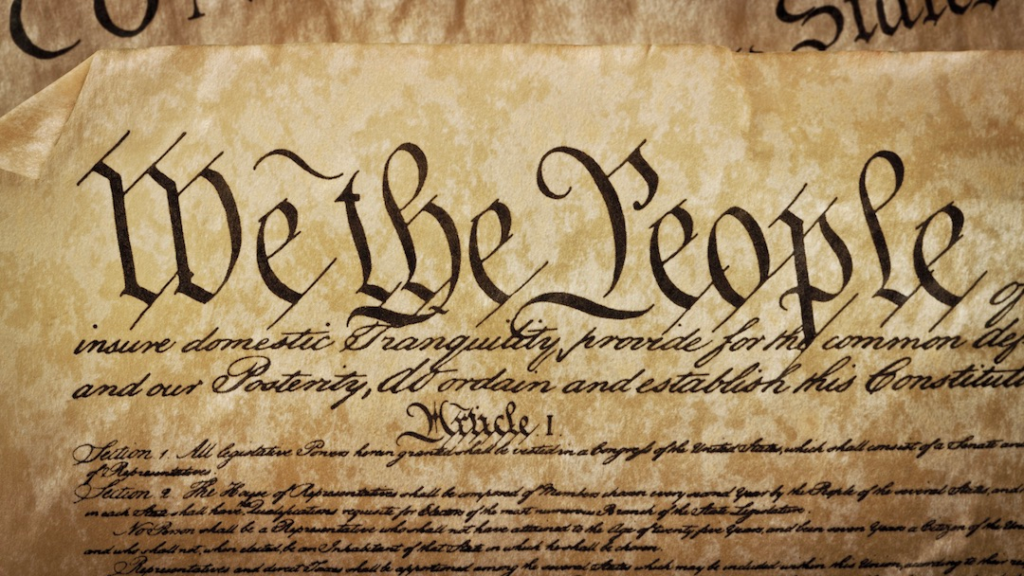 States
We the People of
insure domestic Tranquility, provide for the common def
and our Posterity, do ordain and establish this Constituti
Article I
Section 1. All legislative Powers herein granted shall be vested in a Congress of the United States, which shall consist of a Senate an
of Representatives.
Section 2. The House of Representatives shall be composed of Members chosen every second Year by the People of the several States, and
in each State shall have the Qualifications requisite for Electors of the most numerous Branch of the State Legislature.
No Person shall be a Representative who shall not have attained to the Age of twenty five Years, and been seven Years a Citizen of the Un
and who shall not, when elected, be an Inhabitant of that State in which he shall be chosen.
Representatives and direct Taxes shall be apportioned among the several States which may be included within this Union, according to their